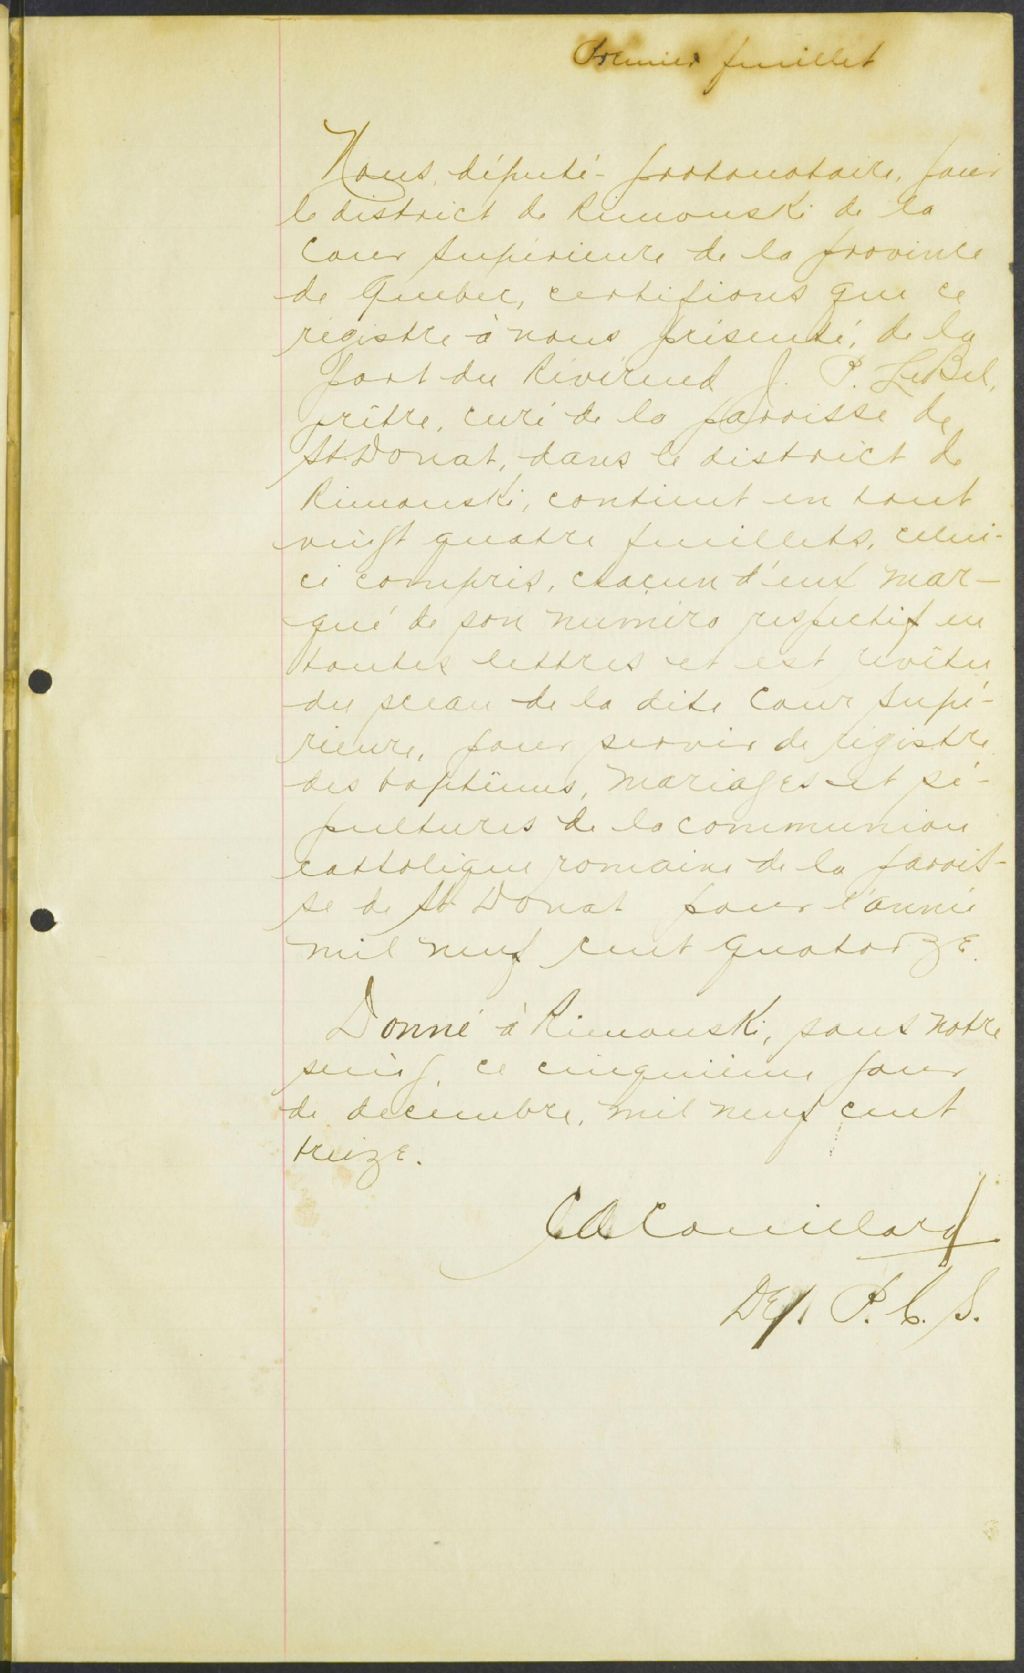 Premier feuillet
Nous, député-protonotaire, pour
le district de Rimouski de la
Cour Supérieure de la province
de Québec, certifions que ce
régistre à nous présenté, de la
part du Révérend J. P. LeBel,
prêtre, curé de la paroisse de
St-Donat, dans le district de
Rimouski, contient en tout
vingt quatre feuillets, celui-
ci compris, chacun d'eux mar-
qué de son numéro respectif en
toutes lettres et est revêtu
du sceau de la dite Cour Supé-
rieure, pour servir de régistre
des baptêmes, mariages et sé-
pultures de la communion
catholique romaine de la parois-
se de St Donat pour l'année
mil neuf cent quatorze.
Donné à Rimouski, sous notre
seing, ce cinquième jour
de décembre, mil neuf cent
treize.
Couillard
Dép. P. C. S.